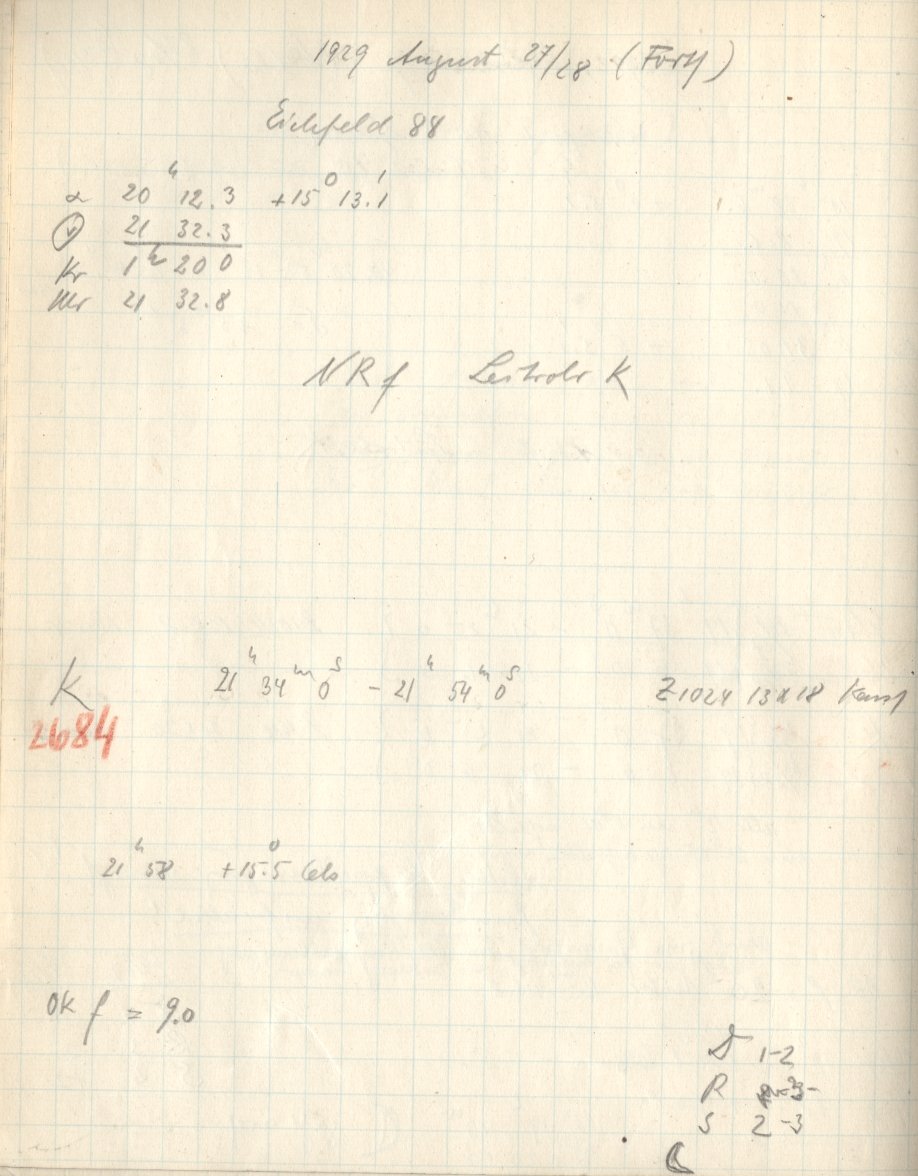 1929 August 27/28 (Forts)
Eichfeld 88
α 20ʰ 12.3 +15° 13.′1
21 32.3
Kr 1ʰ 20 0
Mr 21 32.8
NRf Leitrohr K
K 21ʰ 34ᵐ 0ˢ - 21ʰ 54ᵐ 0ˢ Z1024 13x18
2684
21ʰ 58 +15.°5 Cels
OK f = 9.0
1-2
R
S 2-3